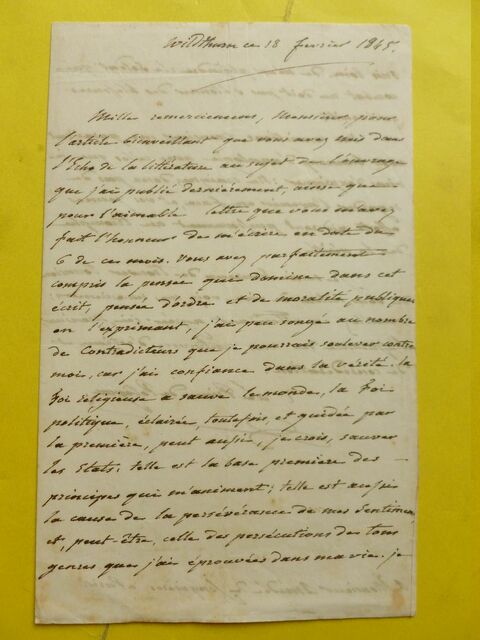 Wildthurn ce 18 fevrier 1845.
Mille remerciemens, Monsieur, pour
l'article bienveillant que vous avez mis dans
l'Echo de la littérature au sujet de l'ouvrage
que j'ai publié dernièrement, ainsi que
pour l'aimable lettre que vous m'avez
fait l'honneur de m'écrire en date du
6 de ces mois. Vous avez parfaitement
compris la pensée que domine dans cet
écrit, pensée d'ordre et de moralité publique;
en l'exprimant, j'ai peu songé au nombre
de contradicteurs que je pourrais soulever contre
moi, car j'ai confiance dans la vérité. la
foi religieuse a sauvé le monde, la foi
politique, éclairée, toutefois, et guidée par
la première, peut aussi, je crois, sauver
les Etats: telle est la base première des
principes qui m'animent; telle est aussi
la cause de la persévérance de mes sentimens
et, peut-être, celle des persécutions de tous
genres que j'ai éprouvées dans ma vie. je